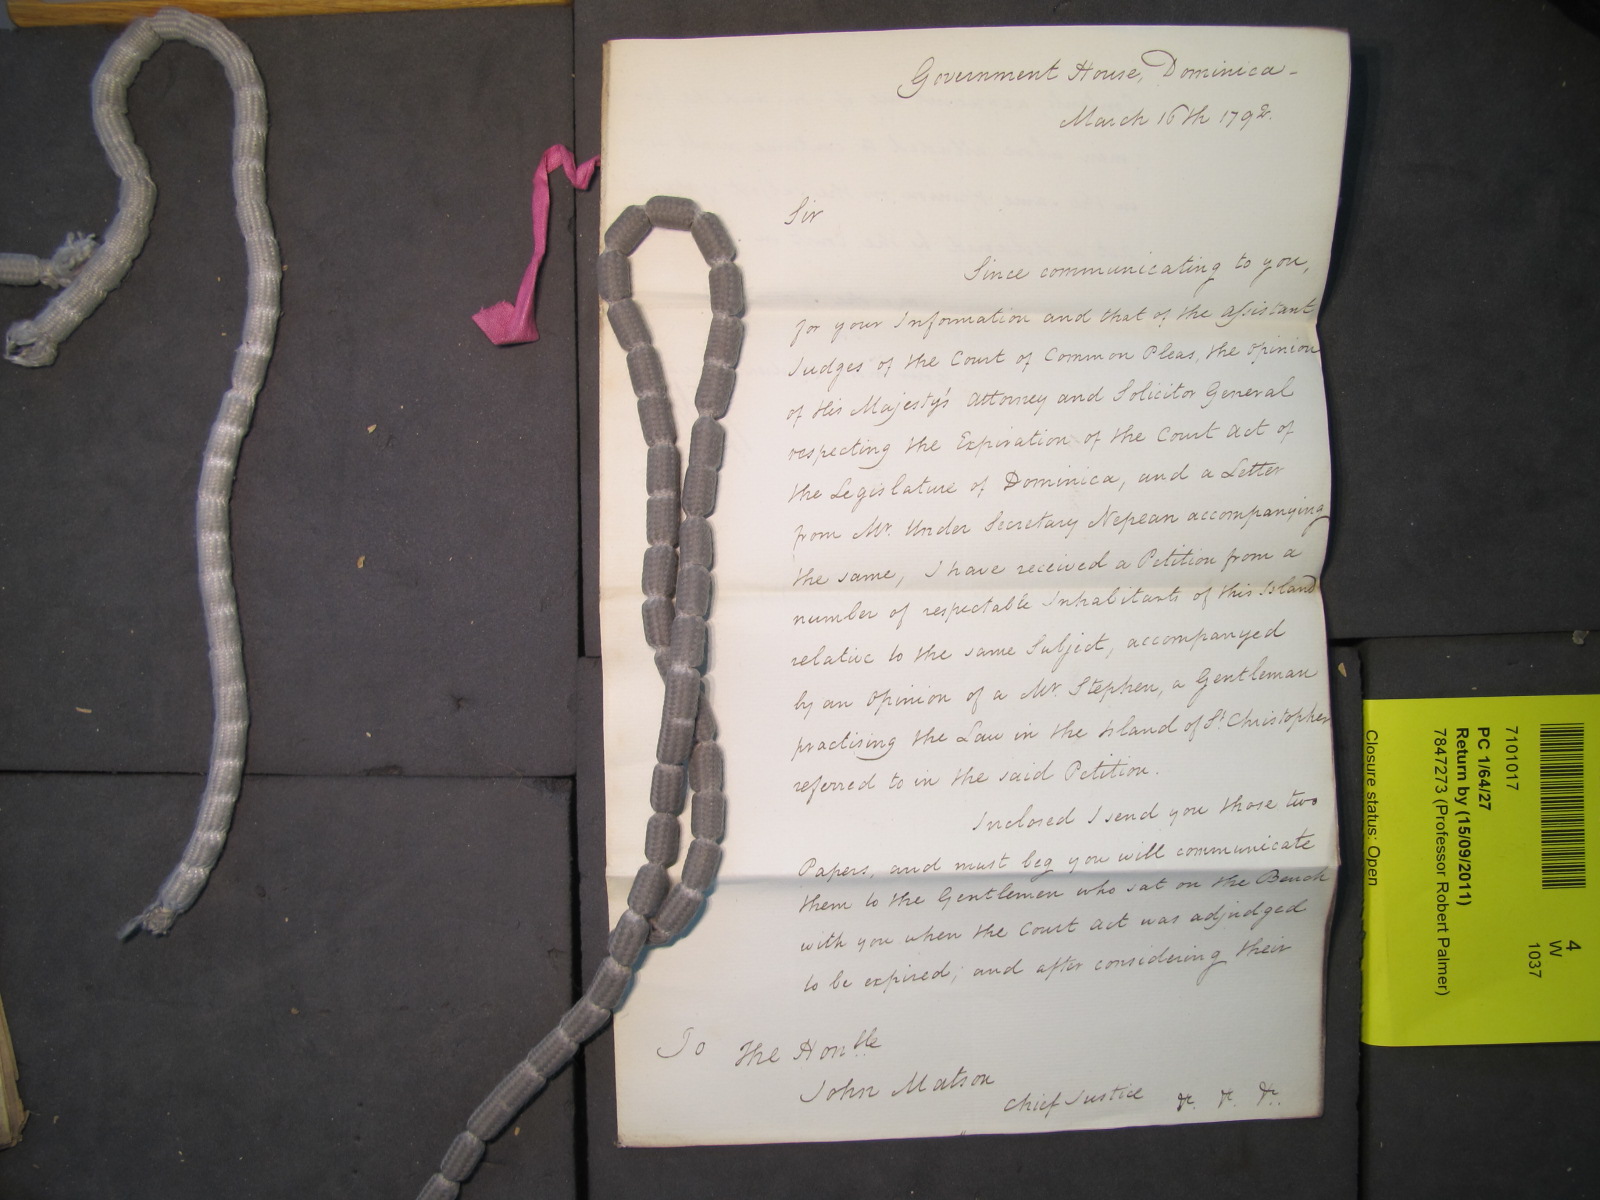 Government House, Dominica -
March 16th 1792.
Sir
Since communicating to you,
for your Information and that of the Assistant
Judges of the Court of Common Pleas, the Opinion
of His Majesty's Attorney and Solicitor General
respecting the Expiration of the Court Act of
the Legislature of Dominica, and a Letter
from Mr. Under Secretary Nepean accompanying
the same, I have received a Petition from a
number of respectable Inhabitants of this Island
relative to the same Subject, accompanyed
by an Opinion of a Mr. Stephen, a Gentleman
practising the Law in the Island of St Christopher
referred to in the said Petition.
Inclosed I send you those two
Papers, and must beg you will communicate
them to the Gentlemen who sat on the Bench
with you when the Court Act was adjudged
to be expired; and after considering their
To The Honble
John Matson
Chief Justice &c. &c. &c.
7101017
PC 1/64/27
Return by (15/09/2011)
7847273 (Professor Robert Palmer)
Closure status: Open
4
W
1037